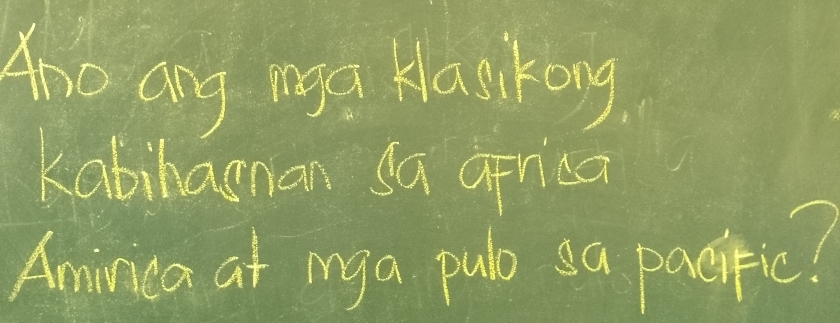 Ano ang mga klasikong
kabihasnan sa africa
Aminica at mga pulo sa pacific?